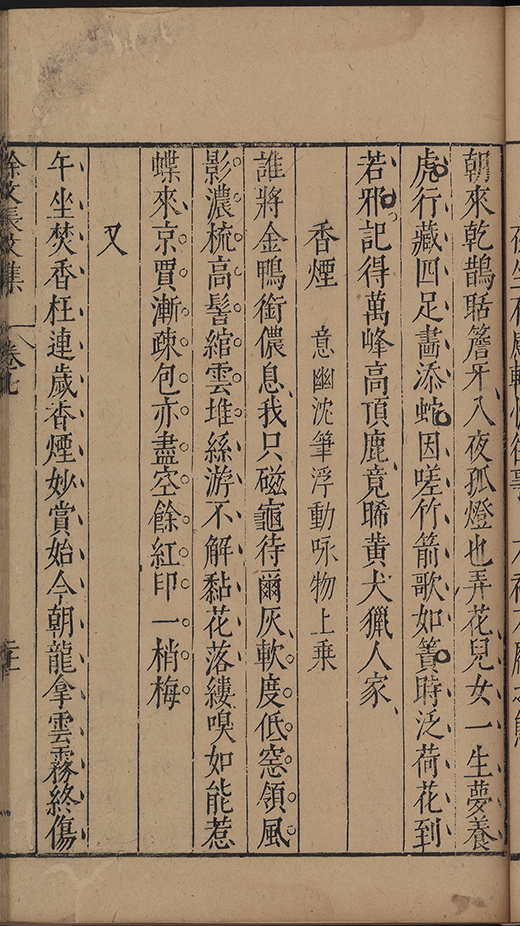 朝來乾鵲聒簷牙入夜孤燈也弄花兒女一生夢養
虎行藏四足畵添蛇因嗟竹箭歌如簀時泛荷花到
若邪記得萬峰高頂鹿竟晞黄犬獵人家
香煙　意幽沈筆浮動咏物上乗
誰將金鴨銜儂息我只磁龜待爾灰軟度低窓領風
影濃梳高髻綰雲堆絲游不解黏花落縷嗅如能惹
蝶來京賈漸疎包亦盡空餘紅印一梢梅
又
午坐焚香枉連歲香煙妙賞始今朝龍拿雲霧終傷
徐文長文集
卷七